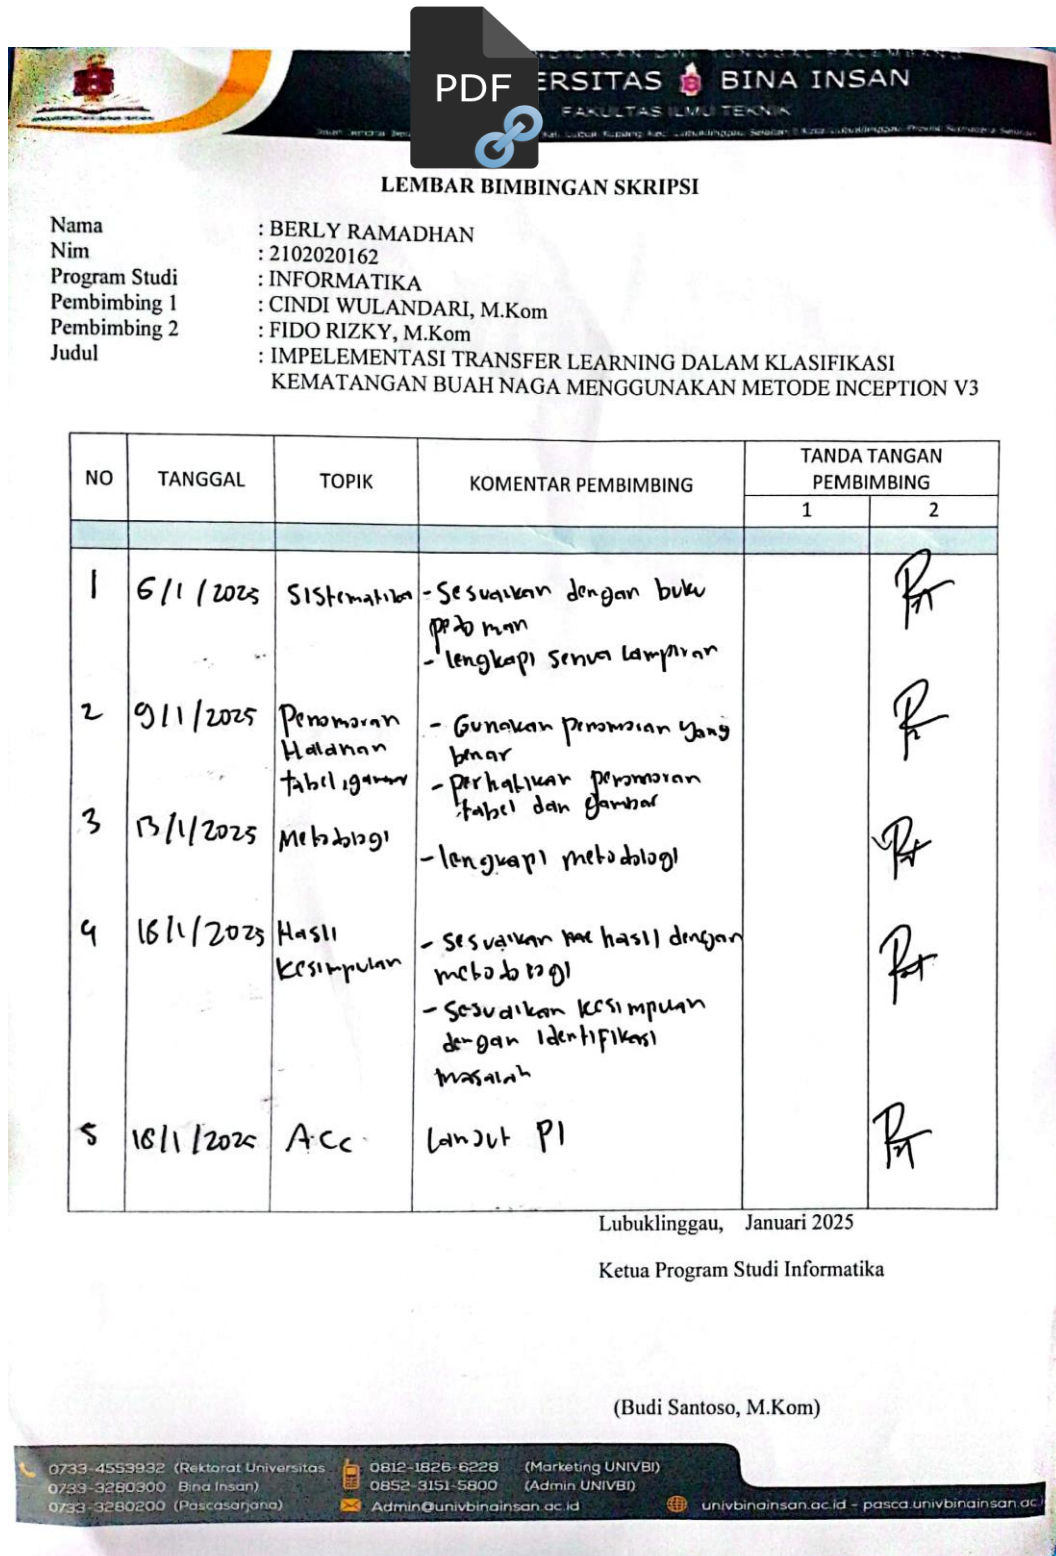 PDF
ERSITAS BINA INSAN
FAKULTAS ILMU TEKNIK
LEMBAR BIMBINGAN SKRIPSI
Nama : BERLY RAMADHAN
Nim : 2102020162
Program Studi : INFORMATIKA
Pembimbing 1 : CINDI WULANDARI, M.Kom
Pembimbing 2 : FIDO RIZKY, M.Kom
Judul : IMPELEMENTASI TRANSFER LEARNING DALAM KLASIFIKASI
KEMATANGAN BUAH NAGA MENGGUNAKAN METODE INCEPTION V3
NO TANGGAL TOPIK KOMENTAR PEMBIMBING TANDA TANGAN PEMBIMBING
1 2
1 6/1/2025 Sistematika - Sesuaikan dengan buku
pedoman
- lengkapi semua lampiran
2 9/1/2025 Penomoran - Gunakan penomoran yang
Halaman benar
tabel, gambar - perhatikan penomoran
tabel dan gambar
3 13/1/2025 Metodologi - lengkapi metodologi
4 16/1/2025 Hasil - sesuaikan hasil dengan
kesimpulan metodologi
- Sesuaikan kesimpuan
dengan identifikasi
masalah
5 18/1/2025 Acc Lanjut P1
Lubuklinggau, Januari 2025
Ketua Program Studi Informatika
(Budi Santoso, M.Kom)
0733-4553932 (Rektorat Universitas 0812-1826-6228 (Marketing UNIVBI)
0733-3280300 Bina Insan) 0852-3151-5800 (Admin UNIVBI)
0733-3280200 (Pascasarjana) Admin@univbinainsan.ac.id univbinainsan.ac.id - pasca.univbinainsan.ac.i